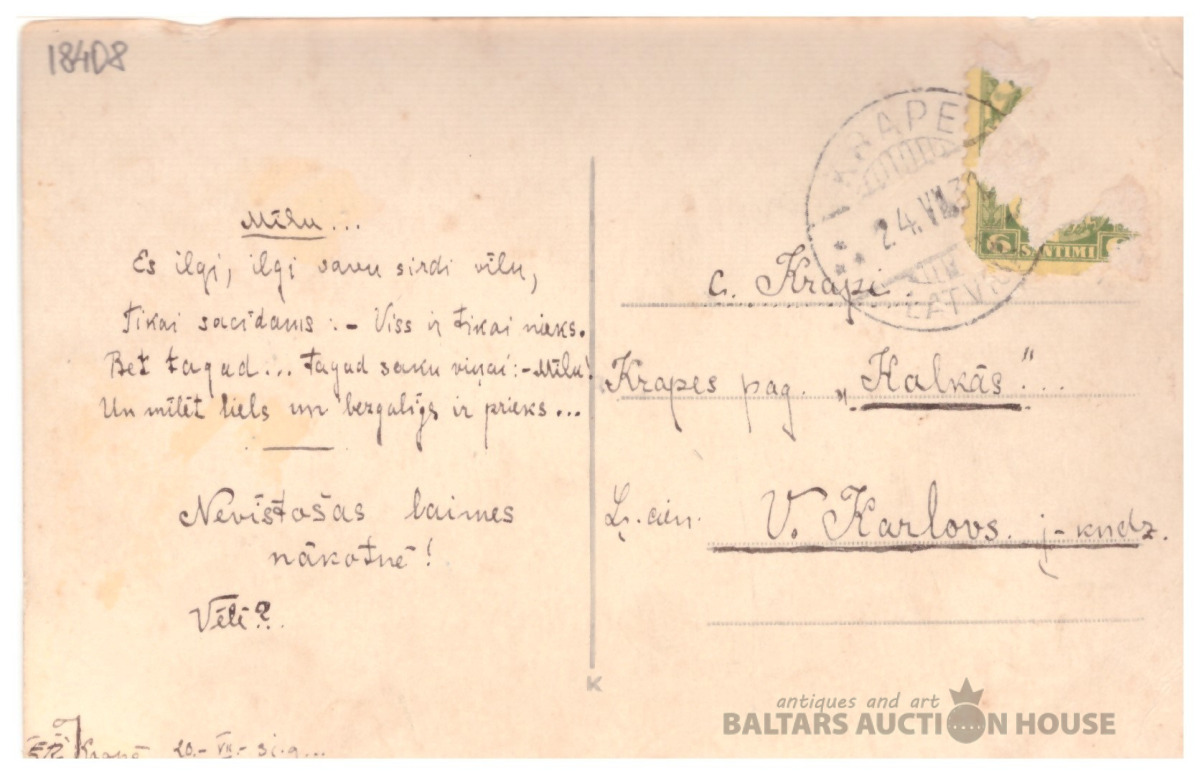 18408
Mīlu...
Es ilgi, ilgi savu sirdi vīlu,
tikai sacīdams: - Viss ir tikai nieks.
Bet tagad... tagad saku viņai: - Mīlu!
Un mīlēt liels un bezgalīgs ir prieks...
Nevīstošas laimes
nākotnē!
Vēlē?
Krapē 20.- VII.-
KRAPE
24. VII 3
LATVIJA
6 SANTIMI
c. Krapi.
Krapes pag. „Kalkās"...
Ļ. cien. V. Karlovs. j-kndz.
K
antiques and art
BALTARS AUCTION HOUSE